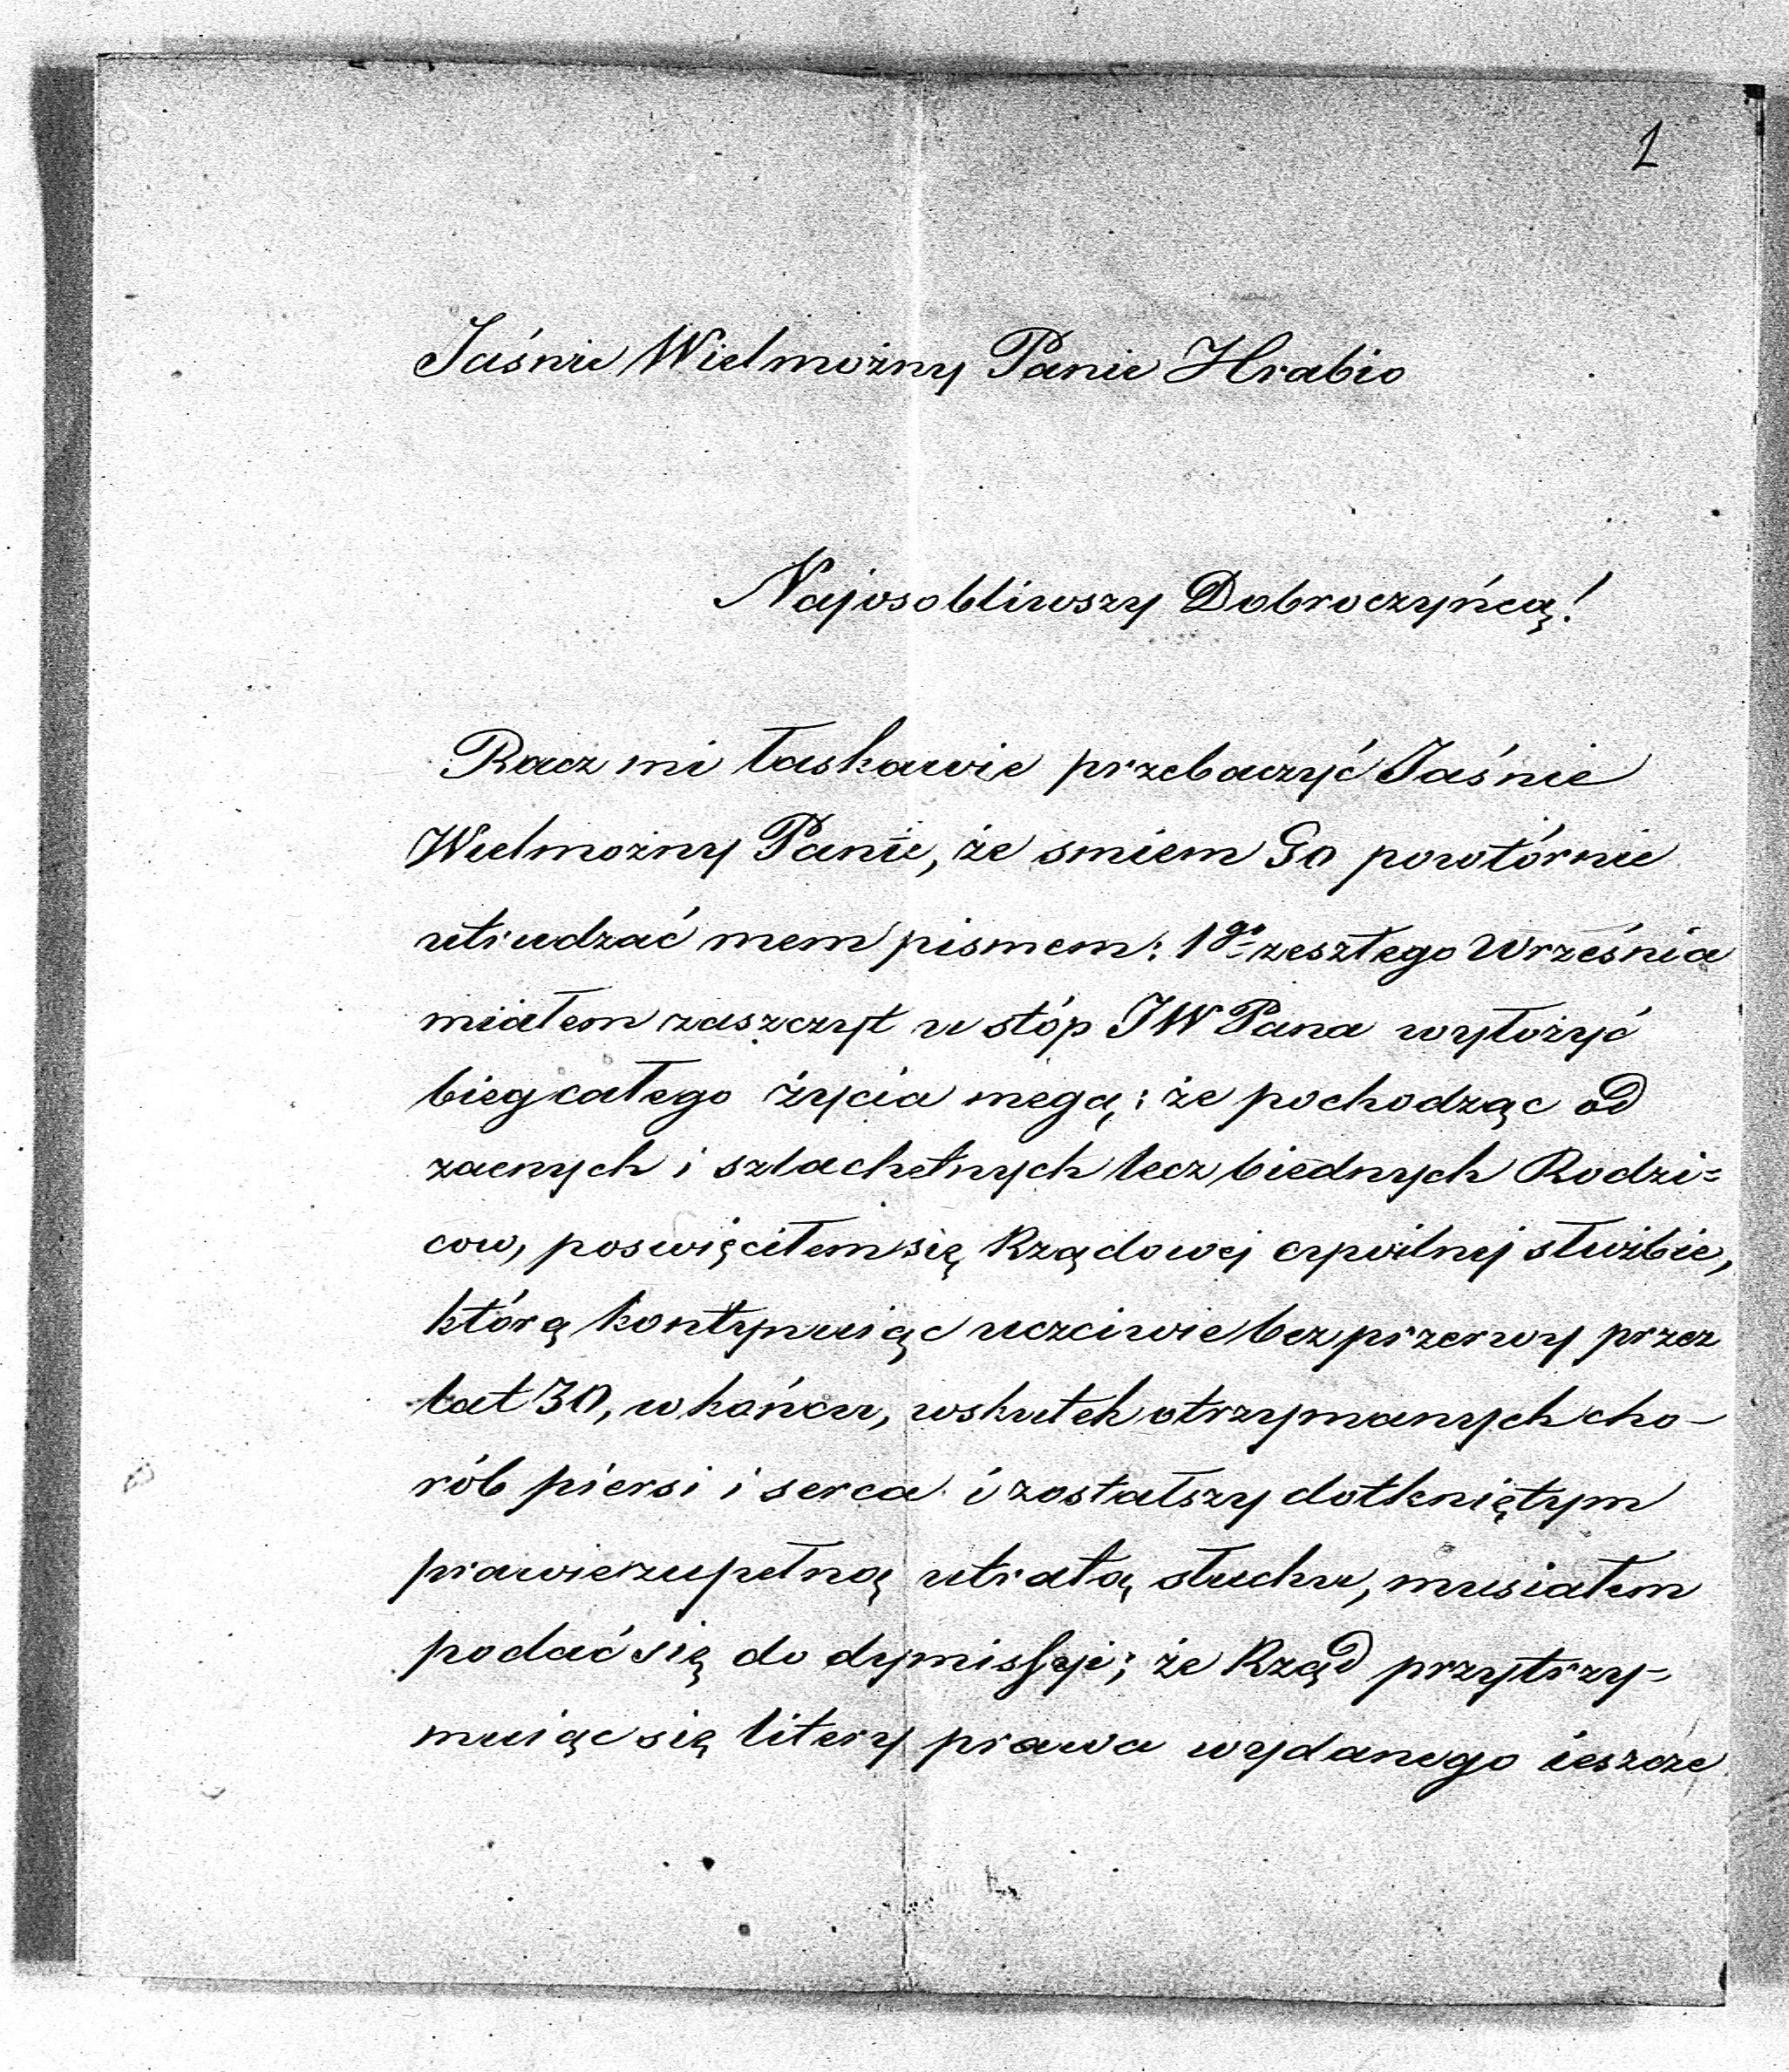 1
Jaśnie Wielmożny Panie Hrabio
Najosobliwszy Dobroczyńcą!
Racz mi łaskawie przebaczyć Jaśnie
Wielmożny Panie, że smiem Go powtórnie
utrudzać mem pismem: 1go zeszłego Września
miałem zaszczyt u stóp JW Pana wyłożyć
bieg całego życia megą; że pochodząc od
zacnych i szlachetnych lecz biednych Rodzi=
cow, poswięciłem się Rządowej cywilnej służbie,
którą kontynuiąc uczciwie bez przerwy przez
lat 30, w końcu, wskutek otrzymanych cho-
rób piersi i serca i zostałszy dotkniętym
prawie zupełną utratą słuchu, musiałem
podać się do dymissyi; że Rząd przytrzy=
muiąc się litery prawa wydanego ieszcze